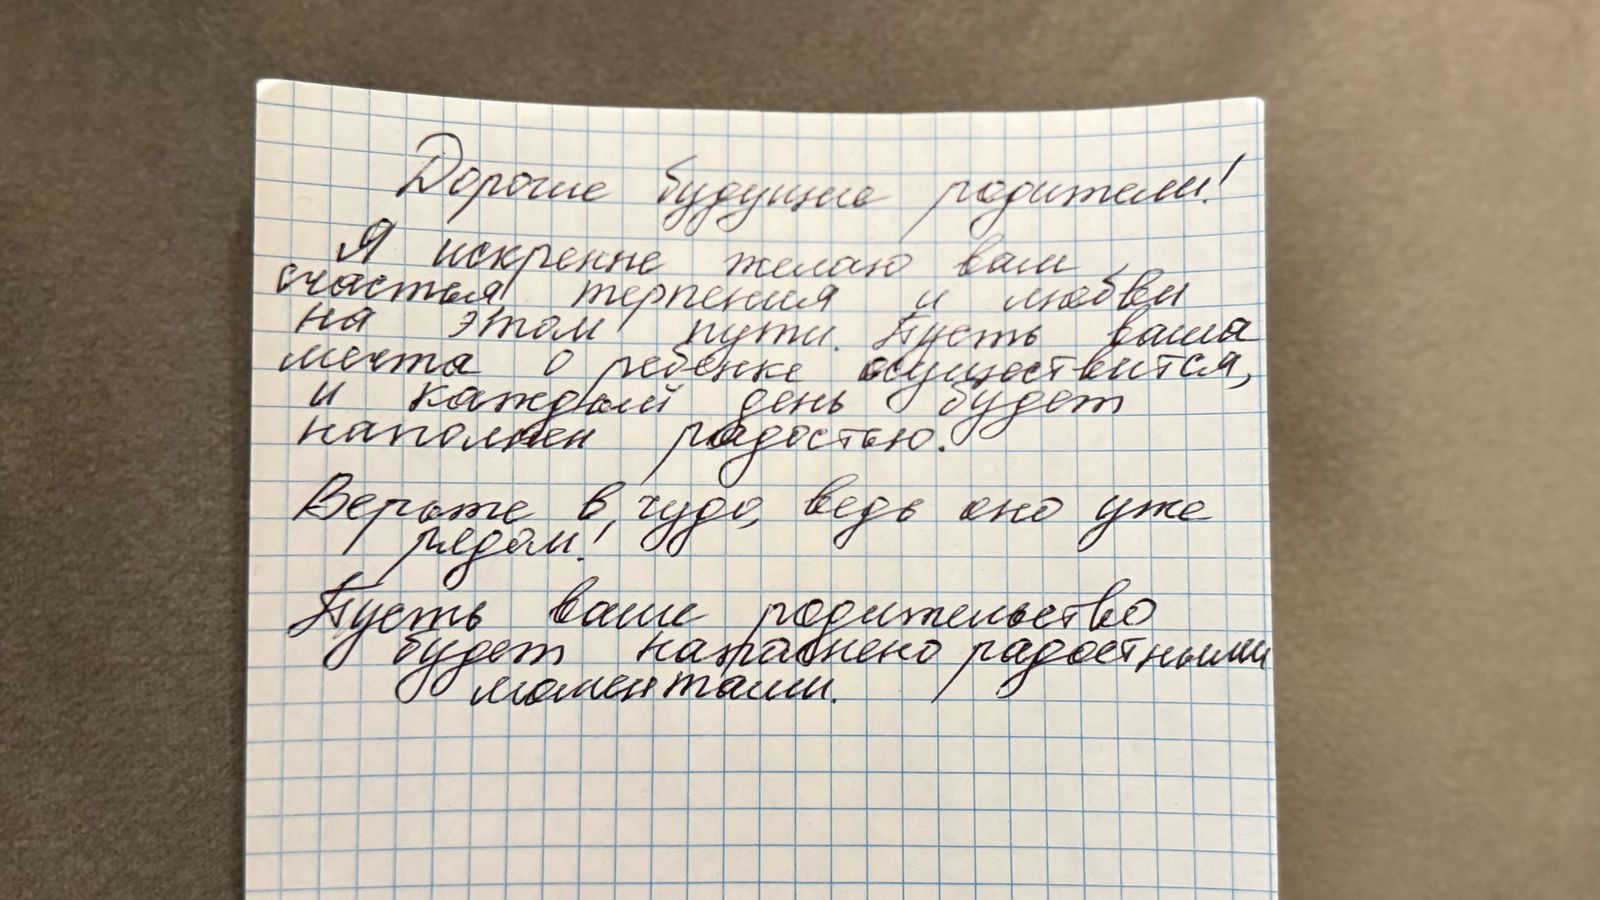 Дорогие будущие родители!
Я искренне желаю вам
счастья, терпения и любви
на этом пути. Пусть ваша
мечта о ребенке осуществится,
и каждый день будет
наполнен радостью.
Верьте в чудо, ведь оно уже
рядом!
Пусть ваше родительство
будет наполнено радостными
моментами.